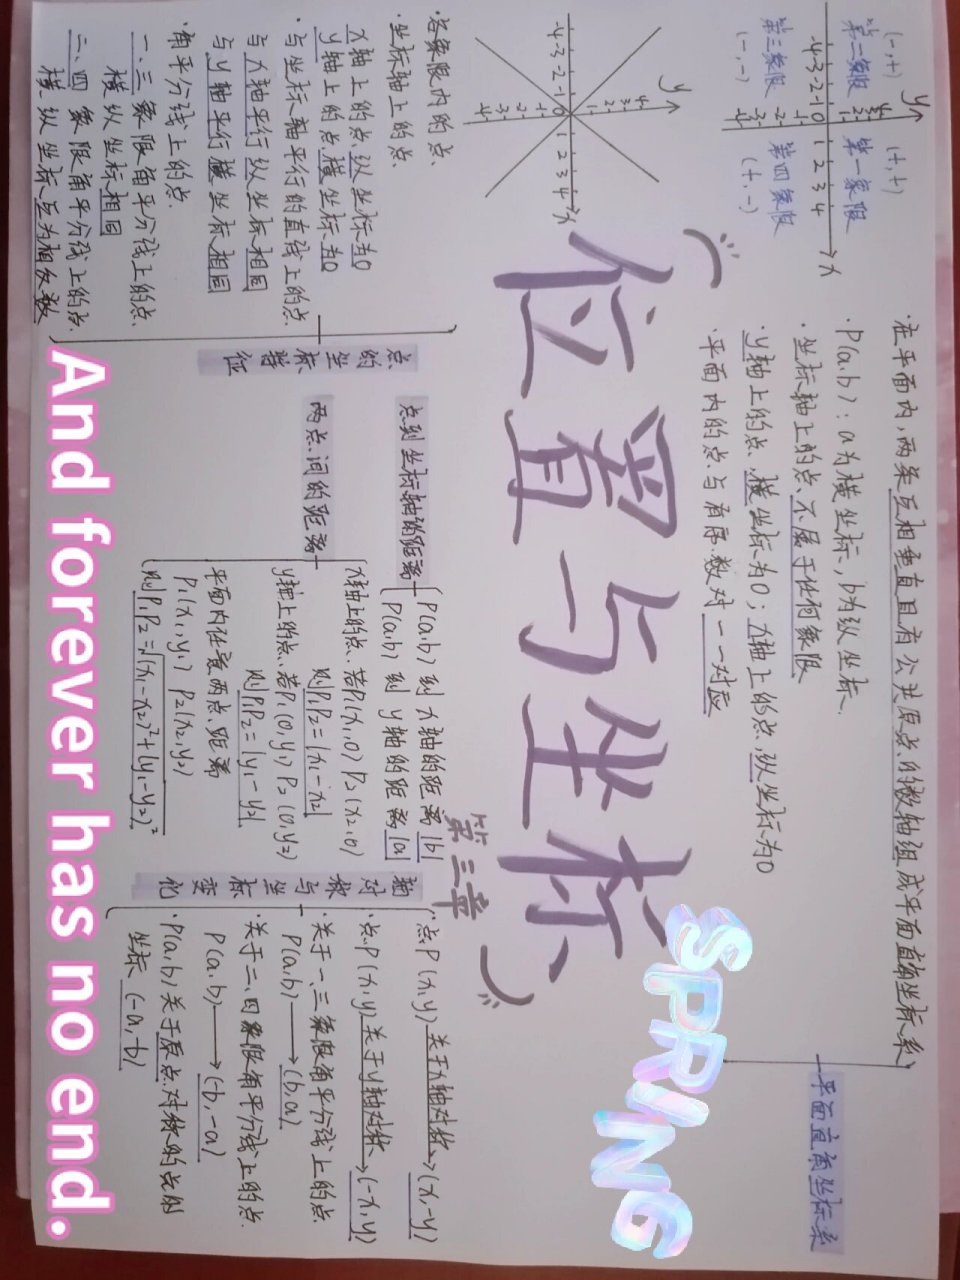 位置与坐标
第三章
平面直角坐标系
·在平面内,两条互相垂直且有公共原点的数轴组成平面直角坐标系
·P(a,b):a为横坐标,b为纵坐标.
·坐标轴上的点不属于任何象限
·y轴上的点,横坐标为0;x轴上的点,纵坐标为0
·平面内的点与有序数对一一对应
y
(-,+)
(+,+)
第二象限
第一象限
4
3
2
1
-4 -3 -2 -1 0 1 2 3 4
x
-1
-2
-3
-4
第三象限
第四象限
(-,-)
(+,-)
y
4
3
2
1
-4 -3 -2 -1 0 1 2 3 4
x
-1
-2
-3
-4
点的坐标特征
·各象限内的点
·坐标轴上的点
x轴上的点纵坐标为0
y轴上的点横坐标为0
·与坐标轴平行的直线上的点
与x轴平行纵坐标相同
与y轴平行横坐标相同
·角平分线上的点
一、三象限角平分线上的点、
横纵坐标相同
二、四象限角平分线上的点、
横纵坐标互为相反数
点到坐标轴的距离
P(a,b)到x轴的距离|b|
P(a,b)到y轴的距离|a|
两点间的距离
x轴上的点、若P1(x1,0)P2(x2,0)
则P1P2=|x1-x2|
y轴上的点、若P1(0,y1)P2(0,y2)
则P1P2=|y1-y2|
平面内任意两点距离
P1(x1,y1) P2(x2,y2)
则P1P2=√(x1-x2)²+(y1-y2)²
轴对称与坐标变化
·点P(x,y)关于x轴对称→(x,-y)
·点P(x,y)关于y轴对称→(-x,y)
·关于一、三象限角平分线上的点
P(a,b)→(b,a)
·关于二、四象限角平分线上的点
P(a,b)→(-b,-a)
·P(a,b)关于原点对称的点的
坐标(-a,-b)
SPRING
And forever has no end.